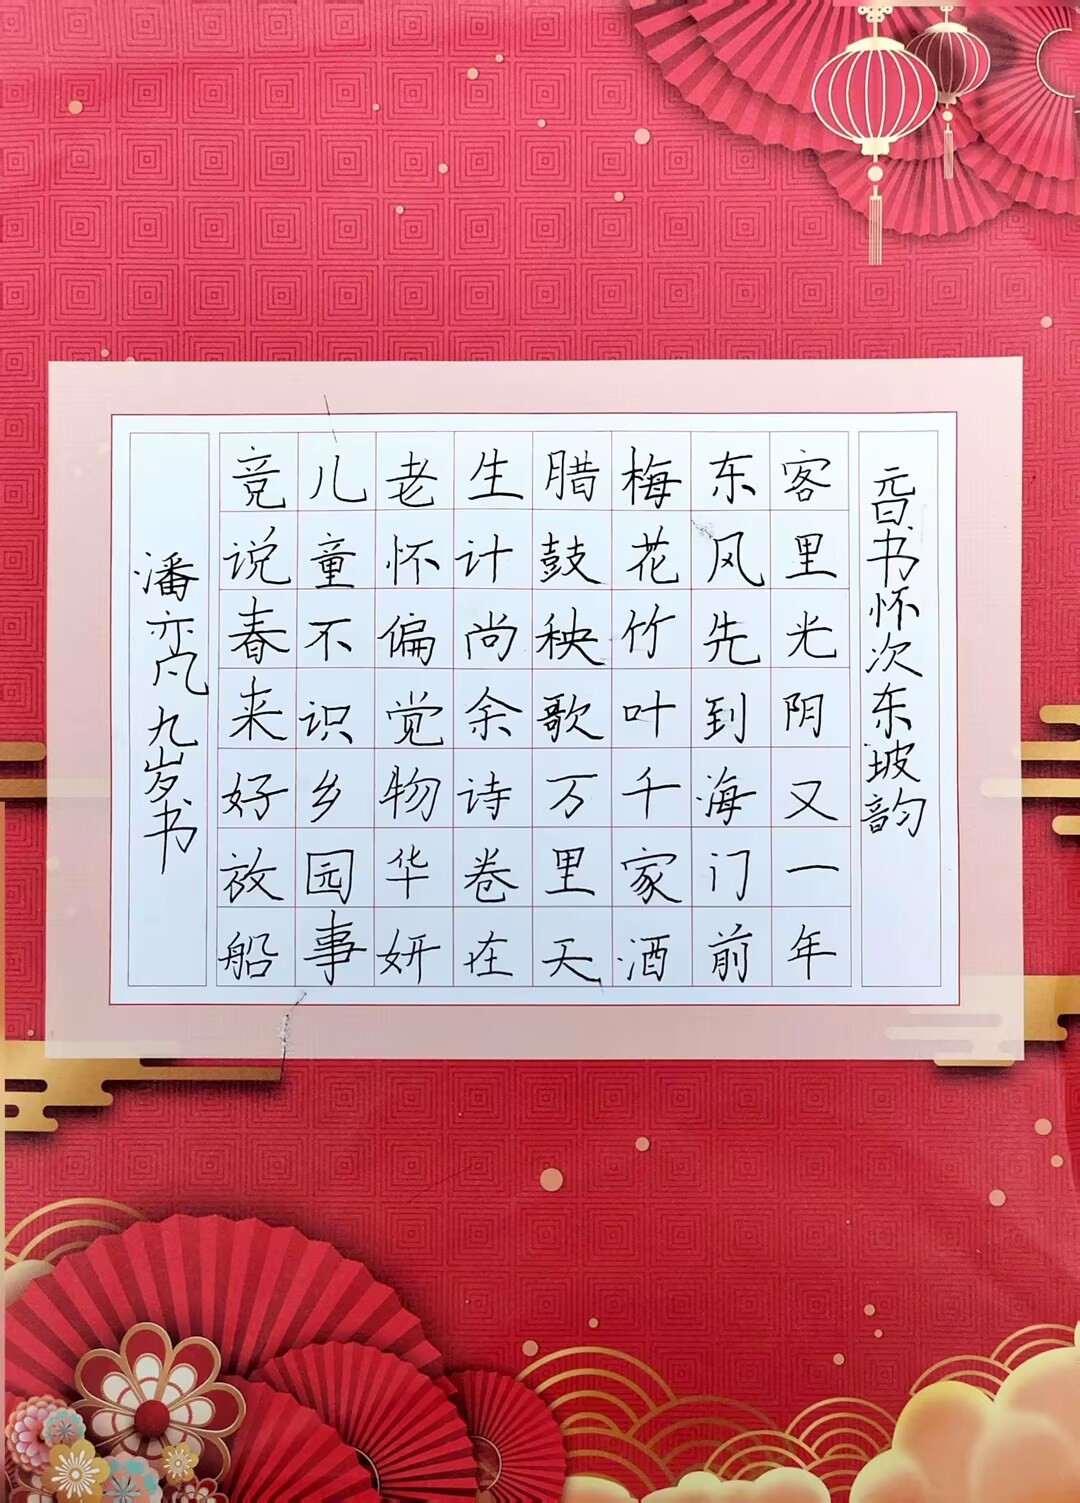 元日书怀次东坡韵
客里光阴又一年
东风先到海门前
梅花竹叶千家酒
腊鼓秧歌万里天
生计尚余诗卷在
老怀偏觉物华妍
儿童不识乡园事
竞说春来好放船
潘奕凡九岁书